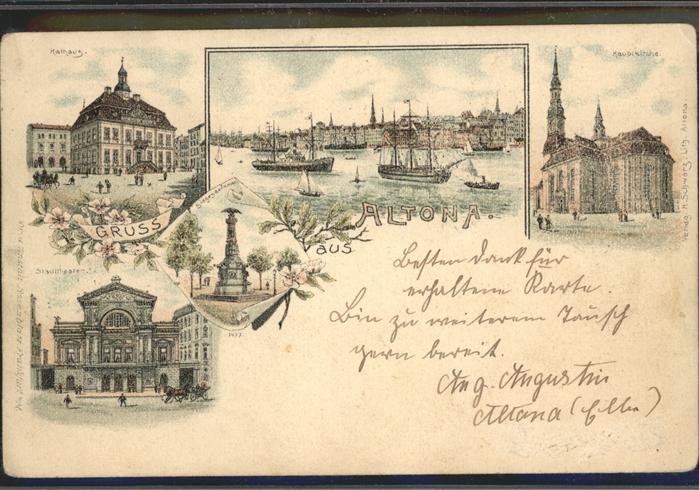 Rathaus.
Hauptkirche.
GRUSS
aus
ALTONA.
Siegesdenkmal
Stadttheater.
1437.
Besten Dank für
erhaltene Karte.
Bin zu weiterem Tausch
gern bereit.
Aug. Augustin
Altona (Elbe)
Verlag H. Schwarz, Lith. Altona